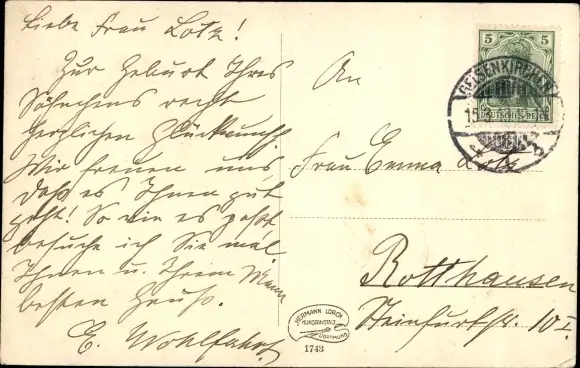 Liebe Frau Lotz!
Zur Geburt Ihres
Söhnchens recht
herzlichen Glückwunsch.
Wir freuen uns,
daß es Ihnen gut
geht! So wie es paßt
besuche ich Sie mal
Ihnen u. Ihrem Mann
besten Gruß.
E. Wohlfahrt
An
Frau Emma Lotz
Rotthausen
Steinfurtstr. 10 I
5 5
DEUTSCHES REICH
GELSENKIRCHEN
HERMANN LORCH
KUNSTANSTALT
DORTMUND
1743